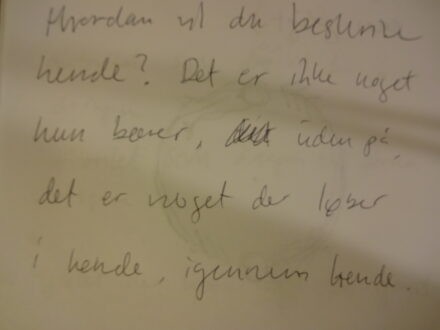 Hvordan vil du beskrive
hende? Det er ikke noget
hun bærer, uden på,
det er noget der løber
i hende, igennem hende.